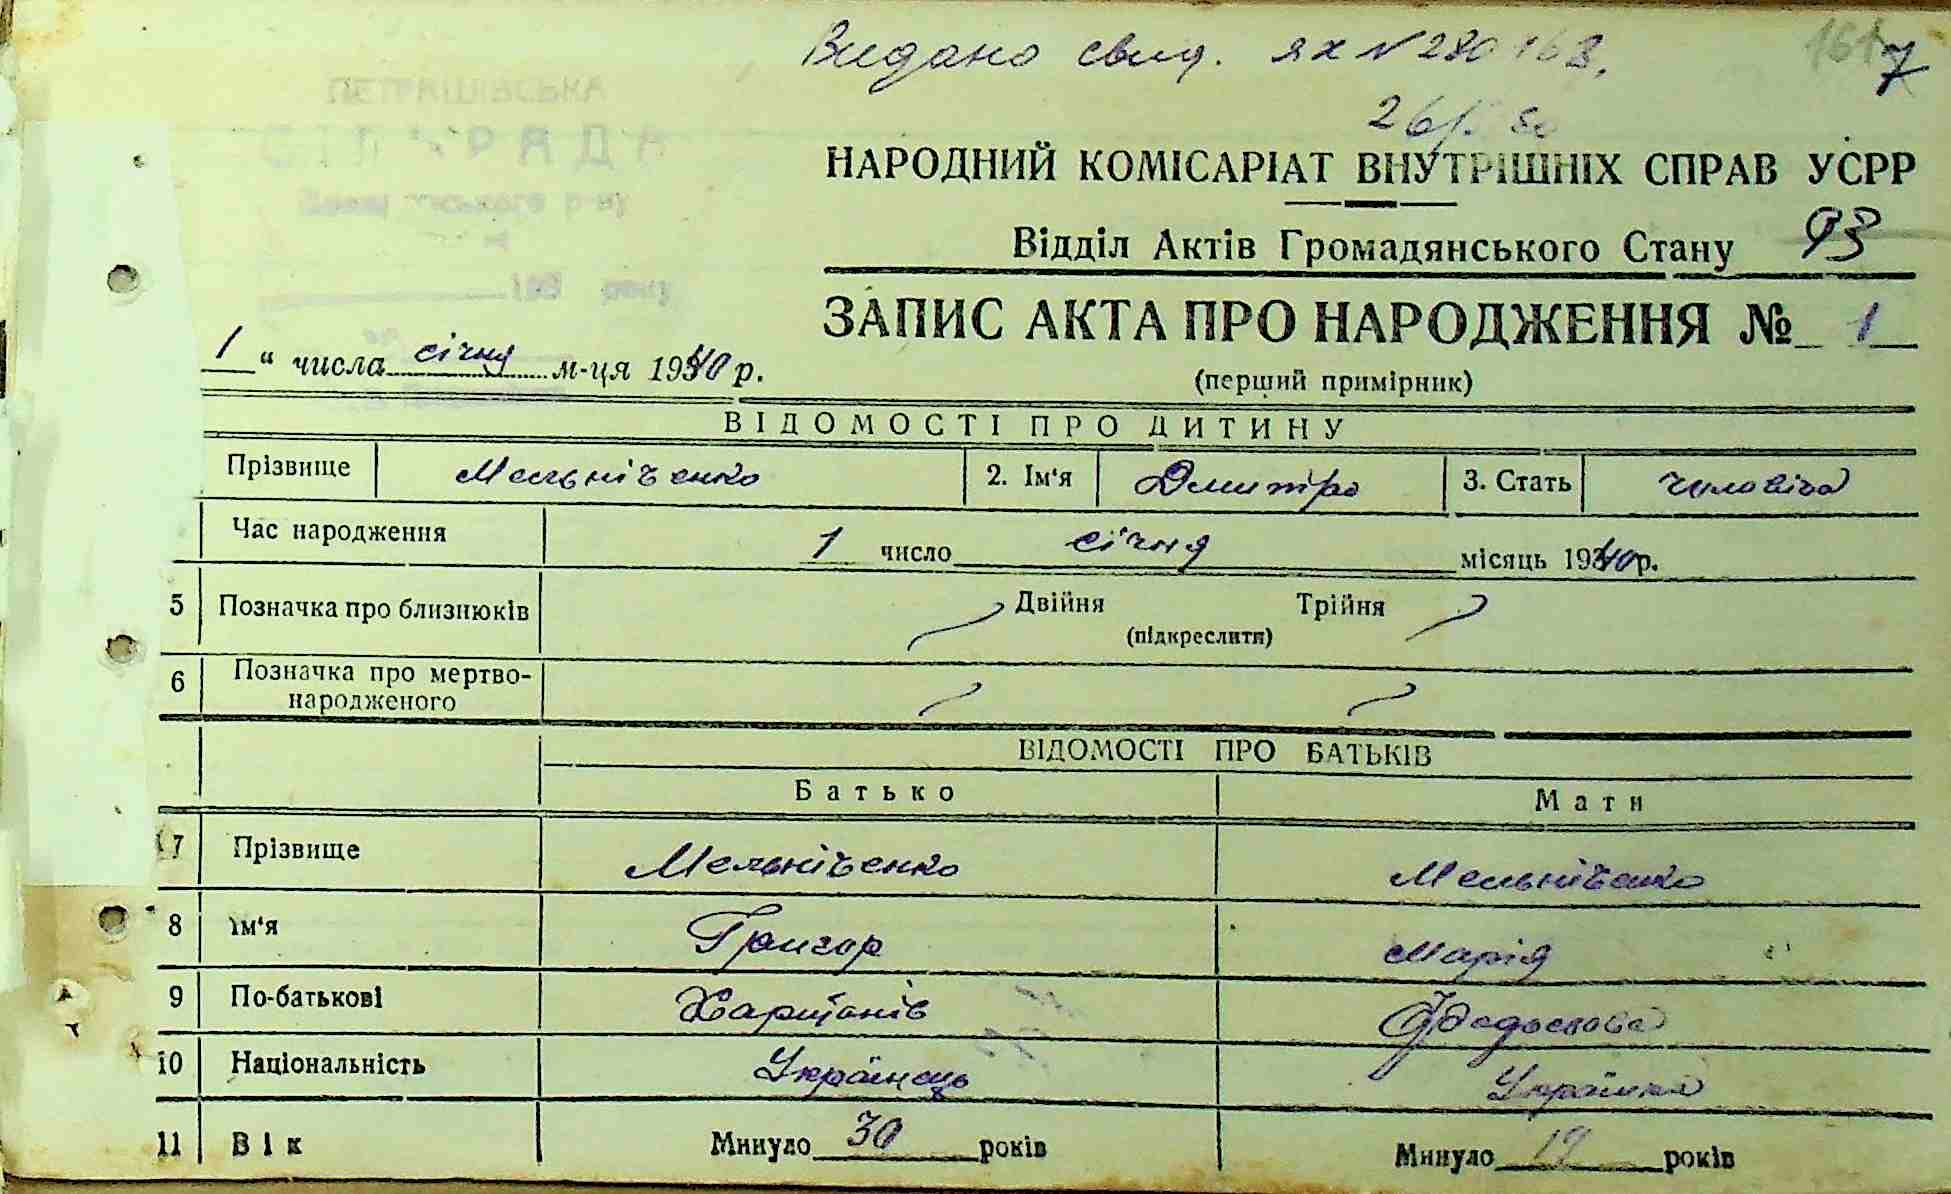 Видано свид. ЯХ N 280168. 7
ПЕТРАШІВСЬКА
СІЛЬРАДА
НАРОДНИЙ КОМІСАРІАТ ВНУТРІШНІХ СПРАВ УСРР
Відділ Актів Громадянського Стану 93
ЗАПИС АКТА ПРО НАРОДЖЕННЯ № 1
1 " числа січня м-ця 1940 р. (перший примірник)
ВІДОМОСТІ ПРО ДИТИНУ
Прізвище Мельніченко 2. Ім'я Дмитро 3. Стать чоловіча
Час народження 1 число січня місяць 1940 р.
5 Позначка про близнюків Двійня Трійня
(підкреслити)
6 Позначка про мертво-
народженого
ВІДОМОСТІ ПРО БАТЬКІВ
Батько Мати
7 Прізвище Мельніченко Мельніченко
8 Ім'я Григор Марія
9 По-батькові Харитонів
10 Національність Українець Українка
11 Вік Минуло 30 років Минуло 19 років